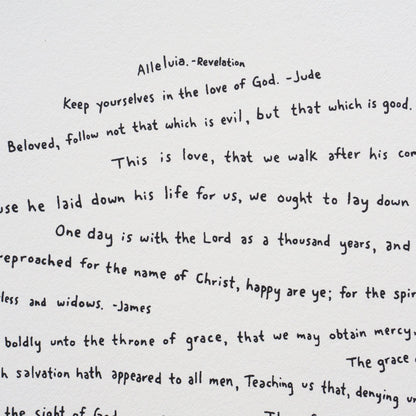 Alleluia. -Revelation
Keep yourselves in the love of God. -Jude
Beloved, follow not that which is evil, but that which is good.
This is love, that we walk after his com
use he laid down his life for us, we ought to lay down
One day is with the Lord as a thousand years, and
reproached for the name of Christ, happy are ye; for the spir
less and widows. -James
boldly unto the throne of grace, that we may obtain mercy,
The grace
h salvation hath appeared to all men, Teaching us that, denying un
the sight of God